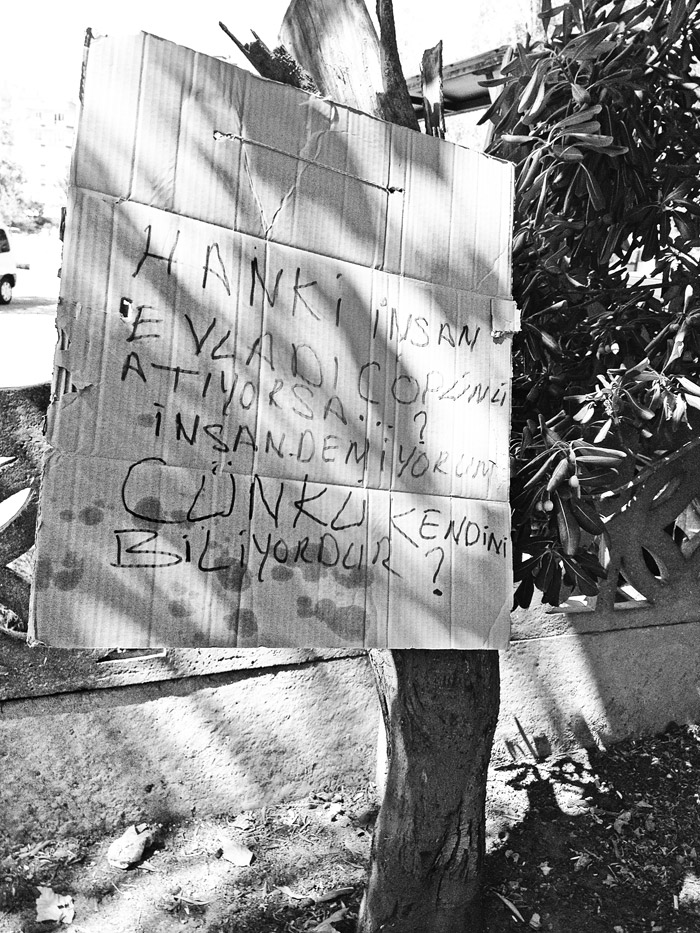 HANKİ İNSAN
EVLADI ÇOPÜNÜ
ATIYORSA...?
İNSAN.DEMİYORUM
ÇÜNKÜ KENDİNİ
BİLİYORDUR?